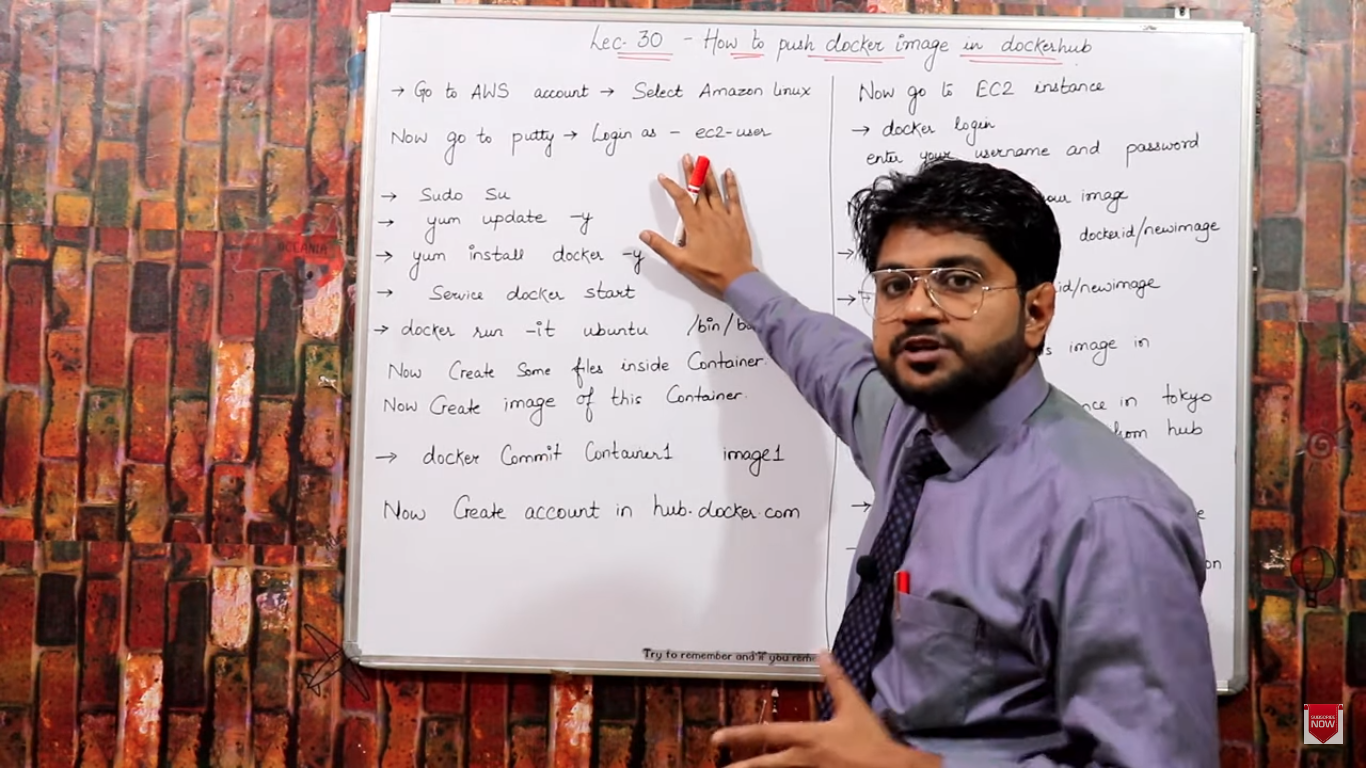 Lec- 30 - How to push docker image in dockerhub
→ Go to AWS account → Select Amazon Linux
Now go to putty → Login as - ec2-user
→ Sudo Su
→ yum update -y
→ yum install docker -y
→ Service docker start
→ docker run -it ubuntu /bin/
Now Create Some files inside Container.
Now Create image of this Container.
→ docker Commit Container1 image1
Now Create account in hub.docker.com
Now go to EC2 instance
→ docker login
enter your username and password
image
dockerid/newimage
→ id/newimage
image in
in tokyo
from hub
Try to remember and if you
OCEANIA
SUBSCRIBE
NOW